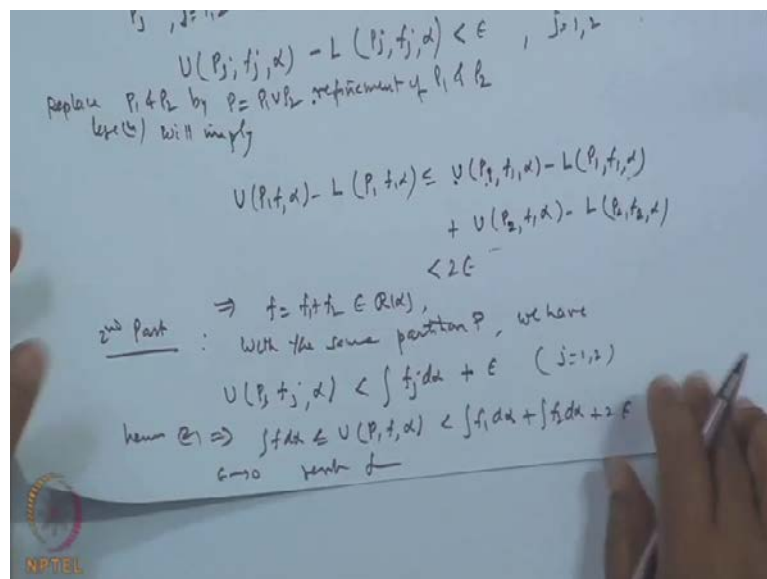 Pj, j=1,2
U(Pj, fj, α) - L(Pj, fj, α) < ϵ , j=1,2
Replace P1 & P2 by P = P1 ∪ P2 refinement of P1 & P2
will imply
U(P, f, α) - L(P, f, α) ≤ U(P1, f1, α) - L(P1, f1, α)
+ U(P2, f, α) - L(P2, f2, α)
< 2ϵ
⇒ f = f1 + f2 ∈ R(α),
2nd Part : With the same partition P, we have
U(P, fj, α) < ∫ fj dα + ϵ (j=1,2)
hence ⇒ ∫f dα ≤ U(P, f, α) < ∫f1 dα + ∫f2 dα + 2ϵ
ϵ→0
NPTEL